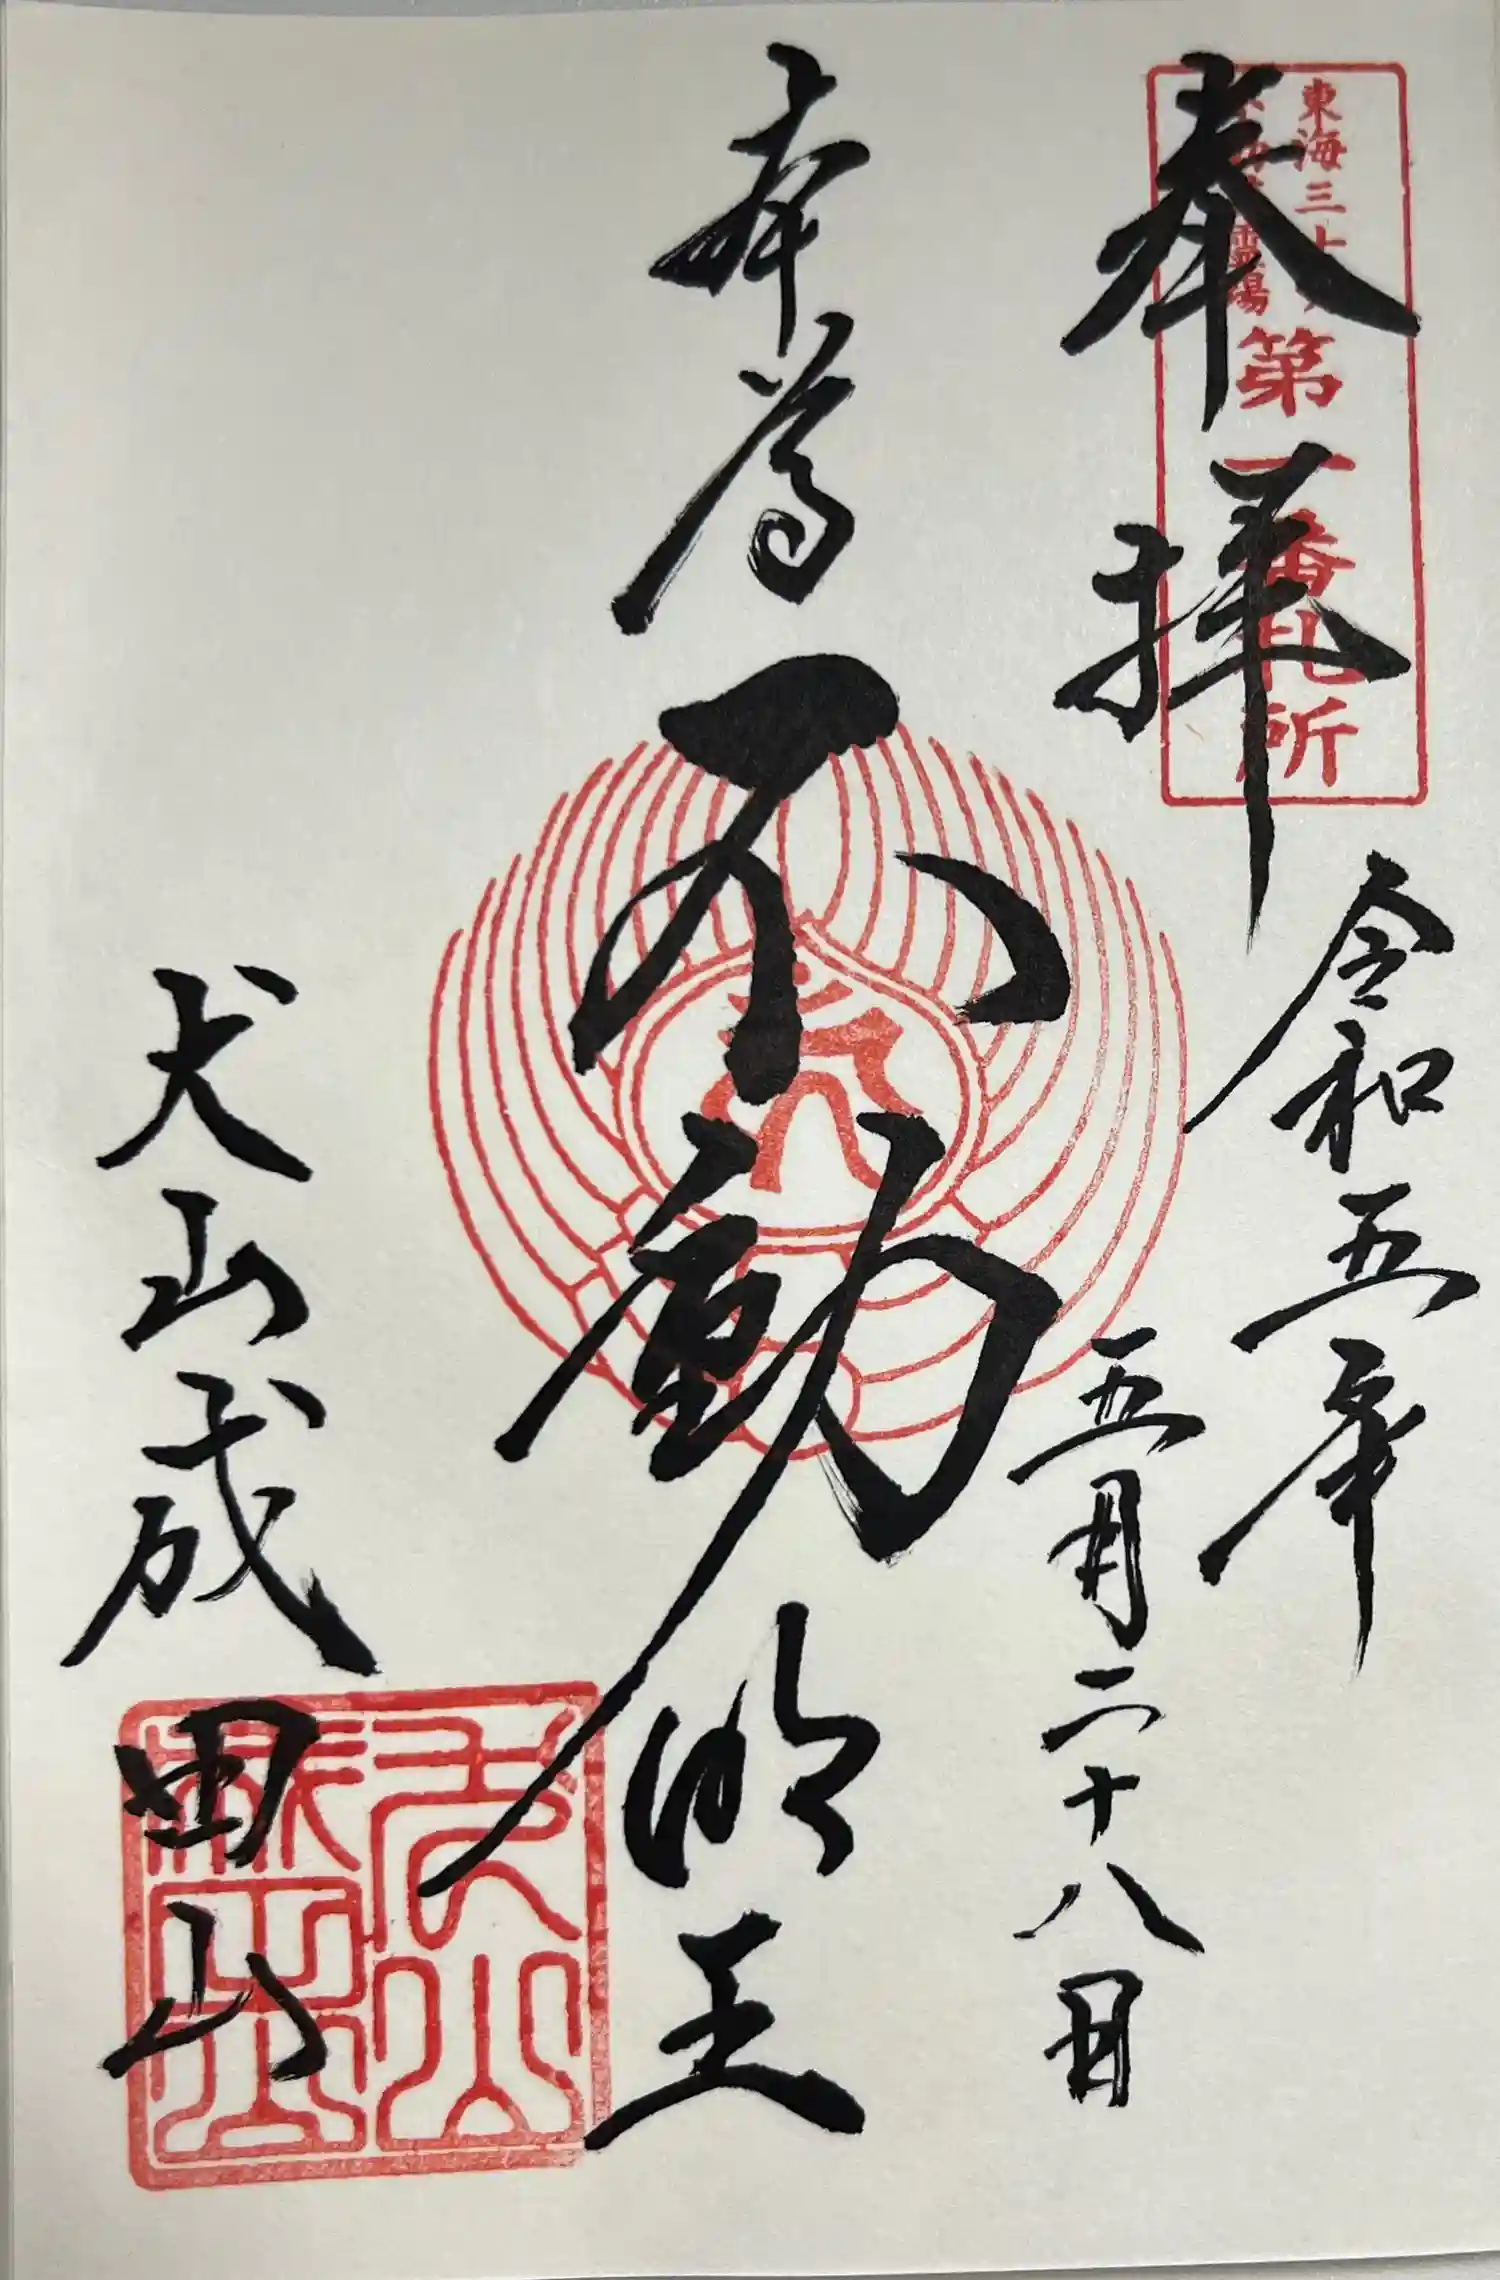 奉拝
東海三十六
不動尊霊場
第一番札所
令和五年
五月二十八日
本尊
不動明王
犬山成田山